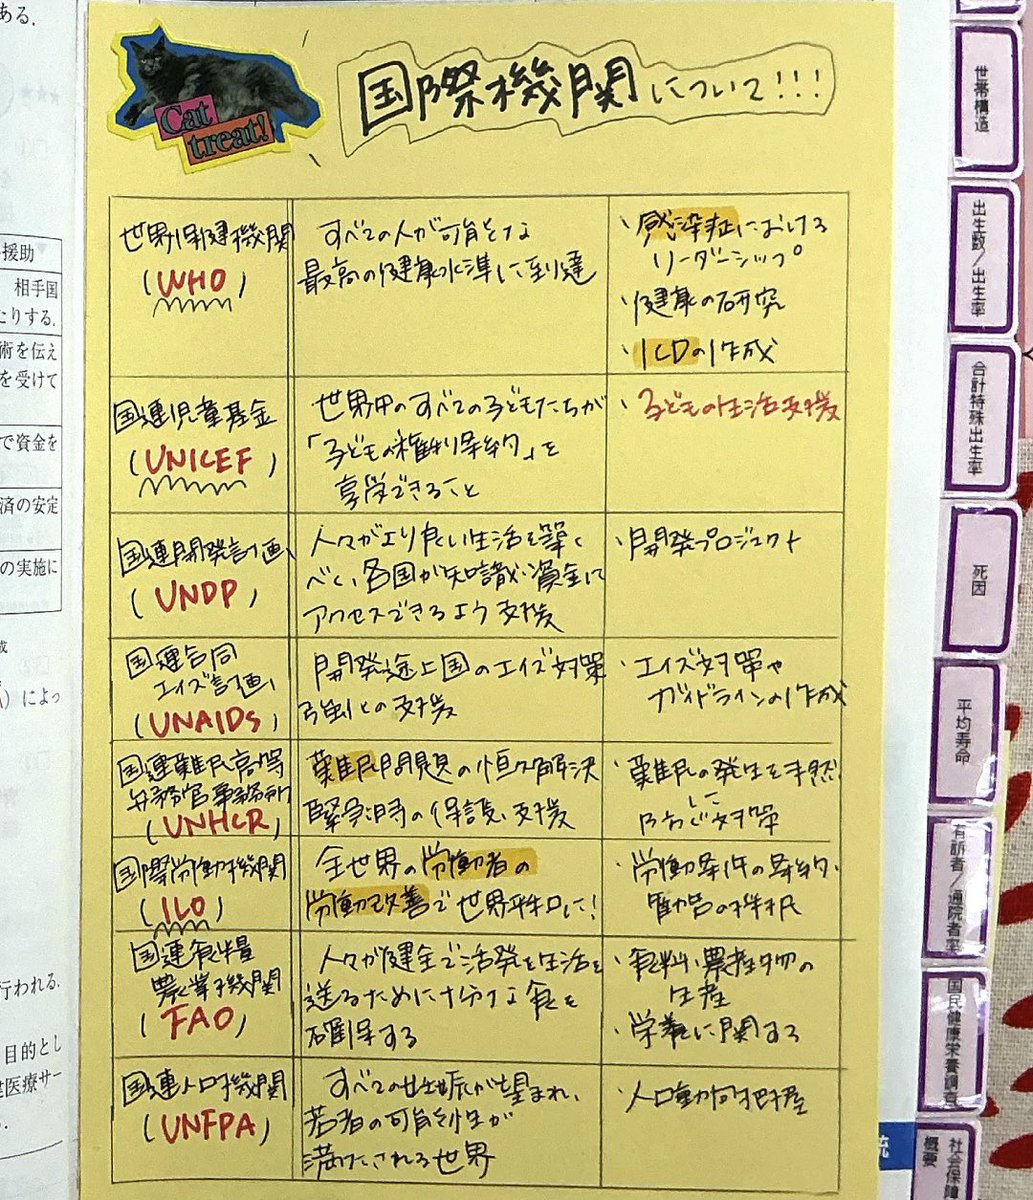 ある.
援助
相手国
たりする.
術を伝え
を受けて
で資金を
済の安定
の実施に
によっ
行われる.
目的とし
医療サー
Cat
treat!
国際機関について!!!
世界保健機関
(WHO)
すべての人が可能な
最高の健康水準に到達
・感染症における
リーダーシップ
・健康の研究
・ICDの作成
国連児童基金
(UNICEF)
世界中のすべての子どもたちが
「子どもの権利条約」を
享受できること
・子どもの生活支援
国連開発計画
(UNDP)
人々がより良い生活を築く
べく、各国が知識・資金に
アクセスできるよう支援
・開発プロジェクト
国連合同
エイズ計画
(UNAIDs)
開発途上国のエイズ対策
強化の支援
・エイズ対策や
ガイドラインの作成
国連難民高等
弁務官事務所
(UNHCR)
難民問題の恒久解決
緊急時の保護、支援
・難民の発生を未然
に
防ぐ対策
国際労働機関
(ILO)
全世界の労働者の
労働改善で世界平和に!
・労働条件の条約・
勧告の採択
国連食糧
農業機関
(FAO)
人々が健全で活発な生活を
送るために十分な食を
確保する
・食料・農産物の
生産
・栄養に関する
国連人口機関
(UNFPA)
すべての妊娠が望まれ、
若者の可能性が
満たされる世界
・人口動向把握
世帯構造
出生数/出生率
合計特殊出生率
死因
平均寿命
有訴者/通院者率
国民健康栄養調査
社会保障
概要
統